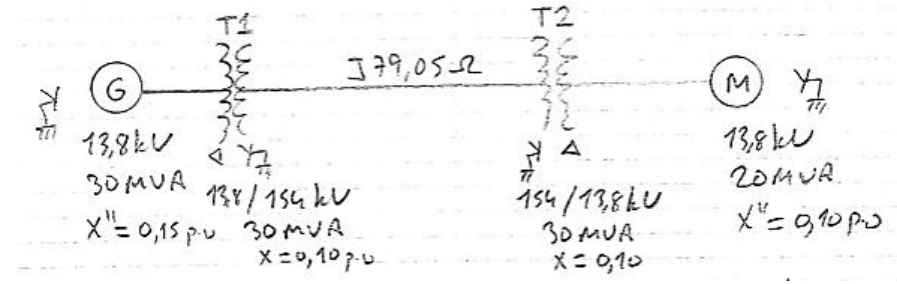 T1
T2
J79,05Ω
G
M
13,8kV
30MVA
X"=0,15p.u
138/154kV
30MVA
X=0,10p.u
154/13,8kV
30MVA
X=0,10
13,8kV
20MVA
X"=0,10p.u